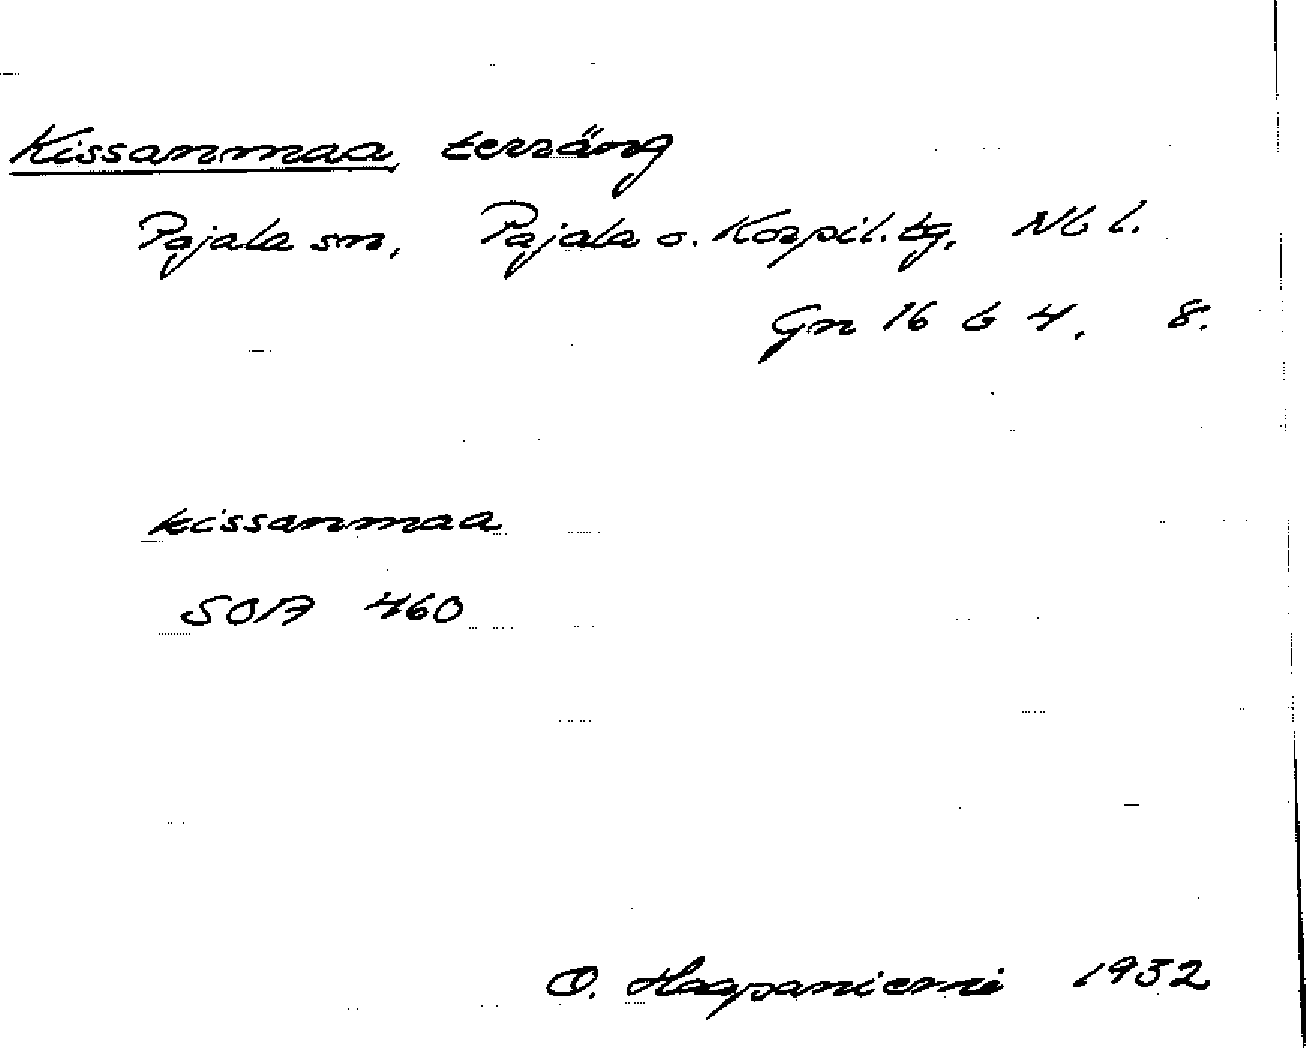 Kissanmaa, terräng
Pajala sn, Pajala o. Korpil. tg, Nb l.
Gn 16 b 4, 8.
kissanmaa
SOA 460
O. Haapaniemi 1932